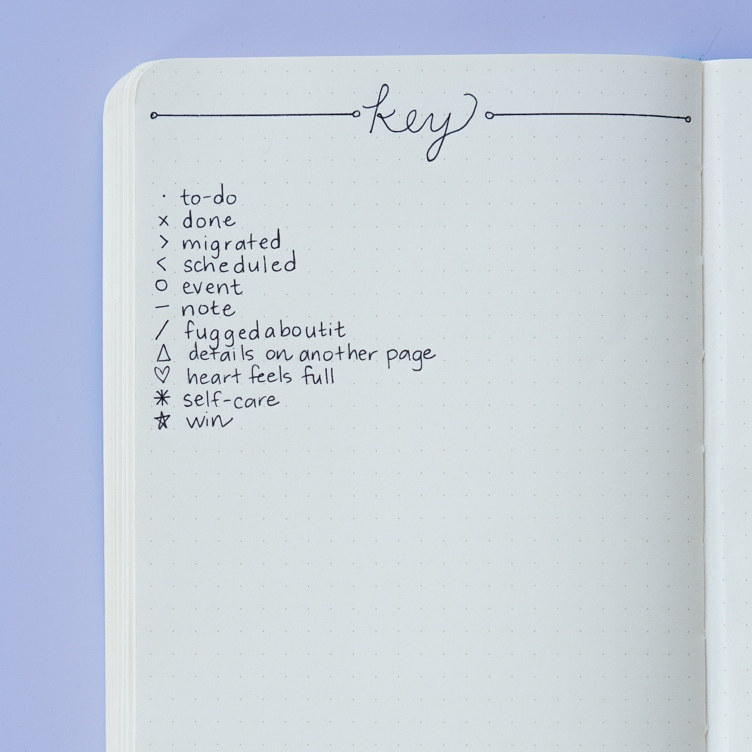 key
· to-do
× done
> migrated
< scheduled
○ event
– note
/ fuggedaboutit
△ details on another page
♡ heart feels full
✳ self-care
☆ win